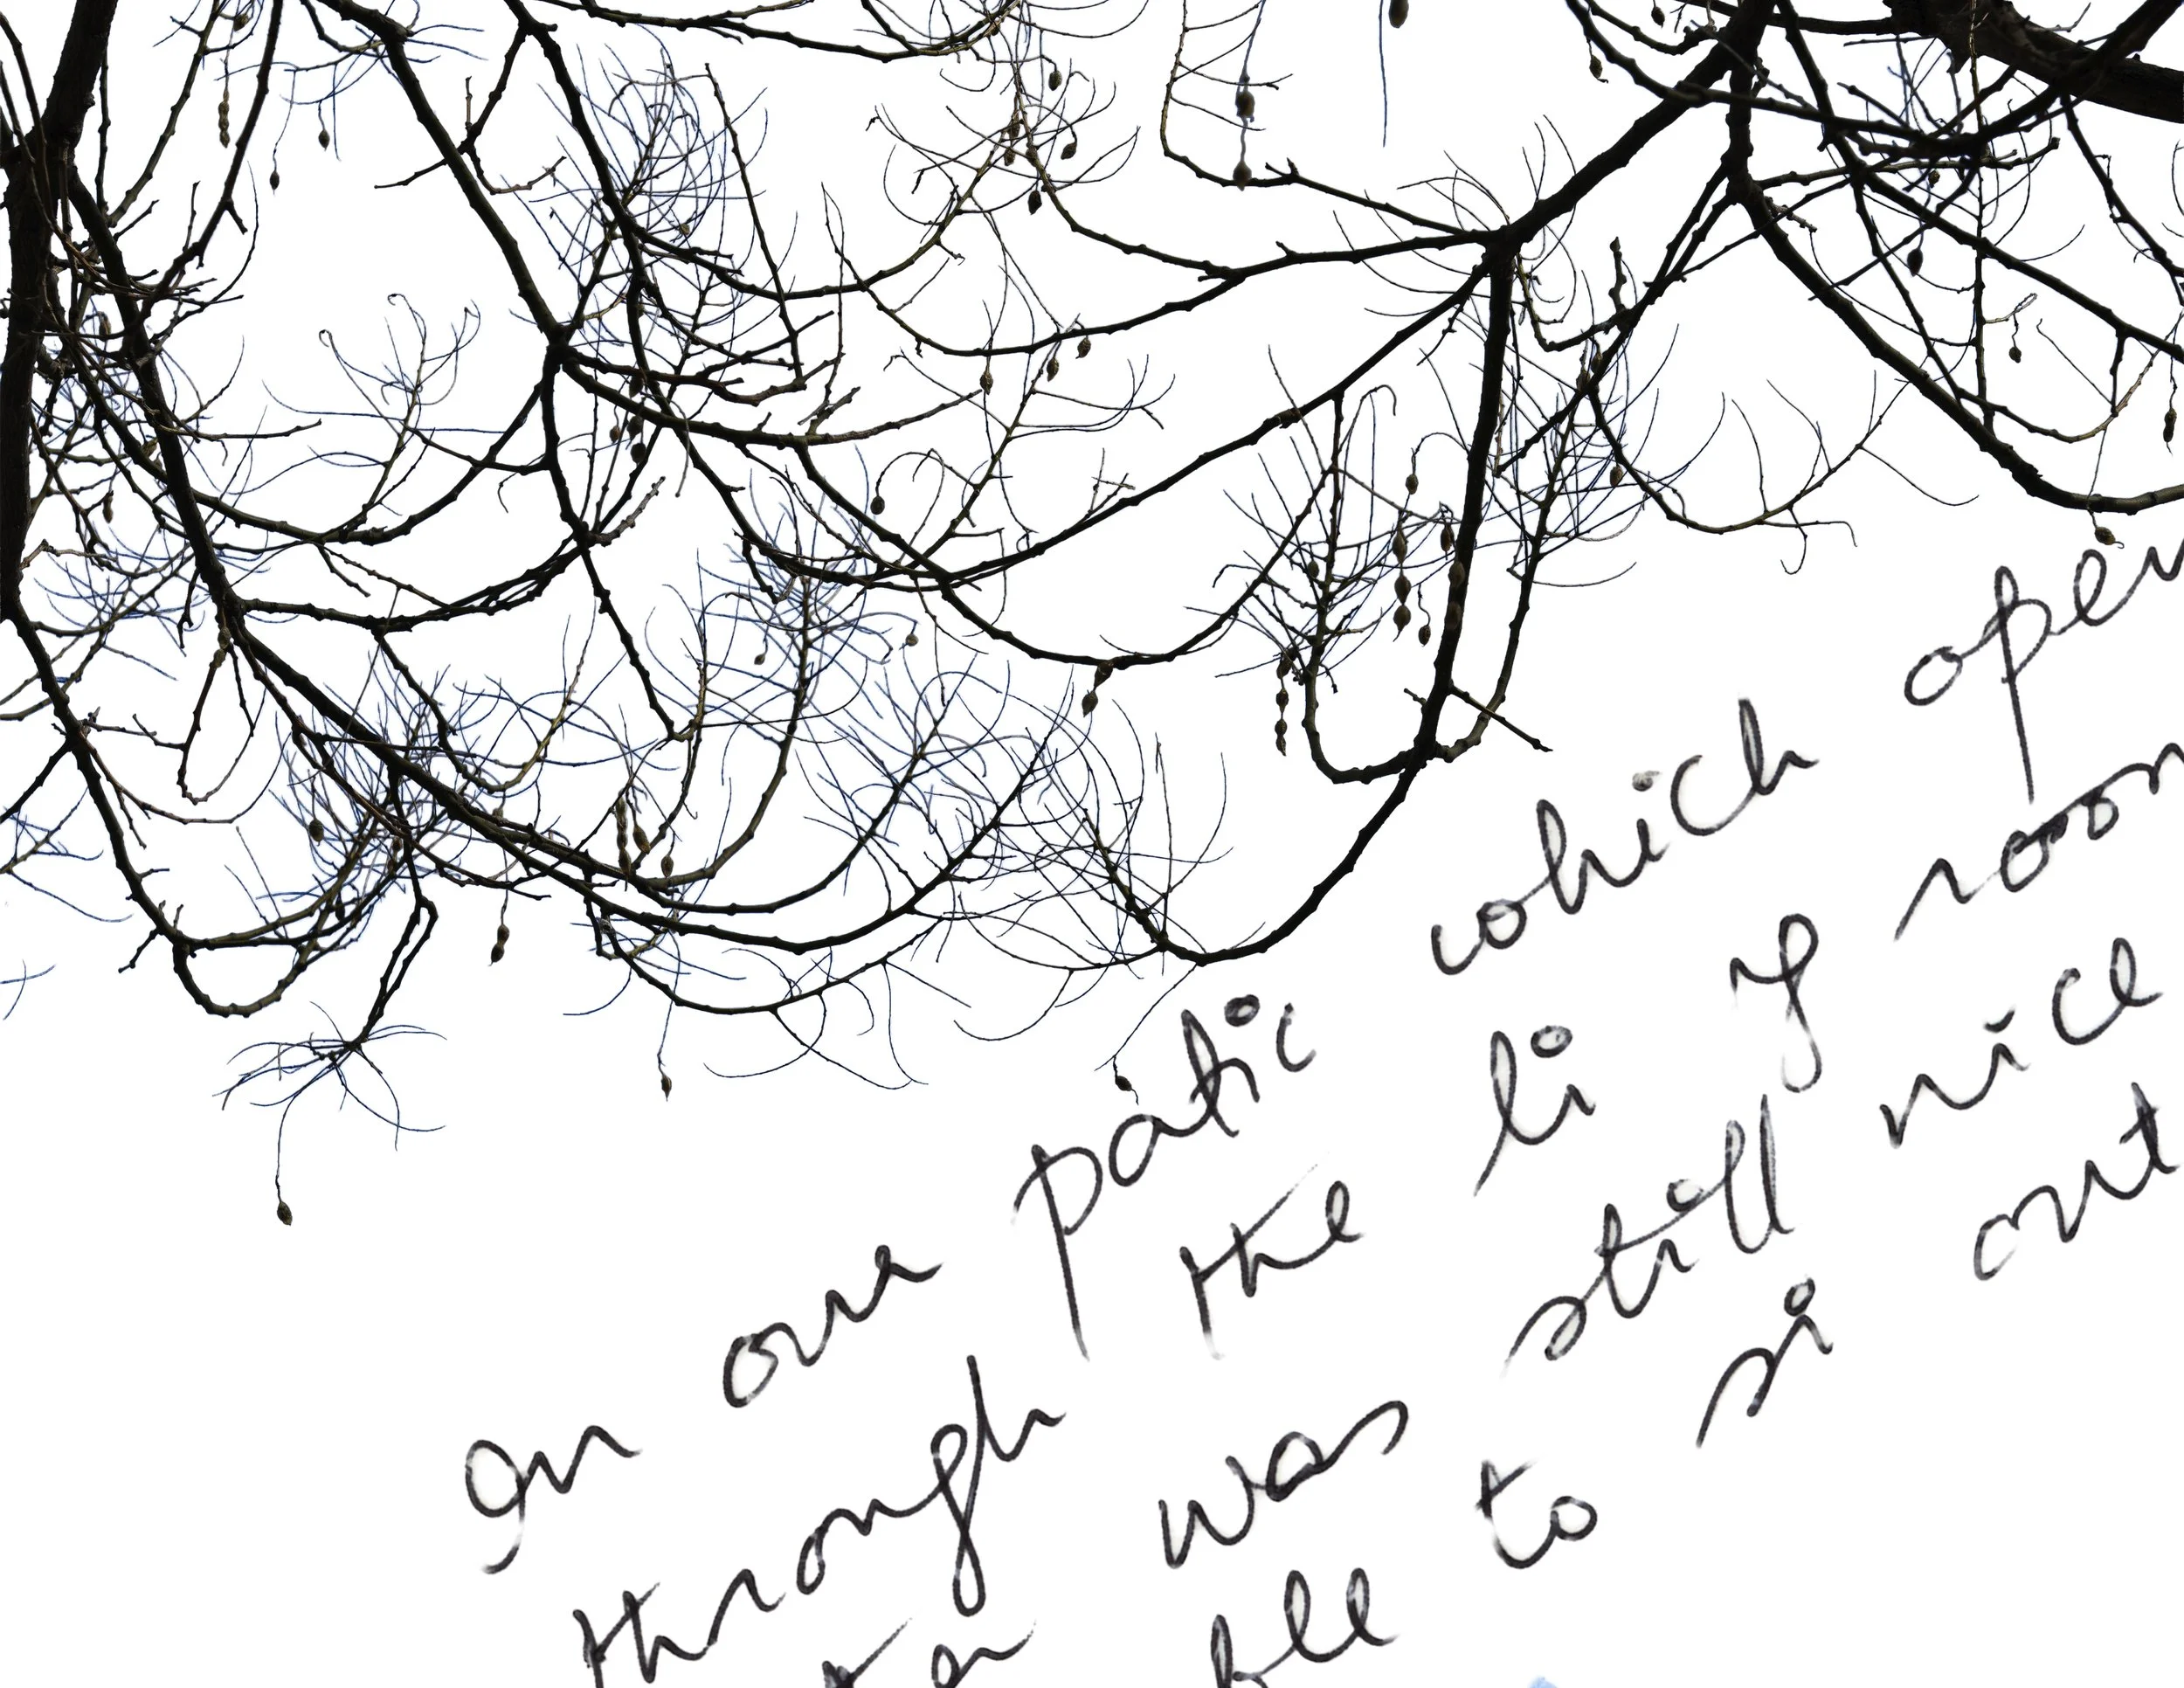 In our patic which open
through the li y room
was still nice
ble to si out